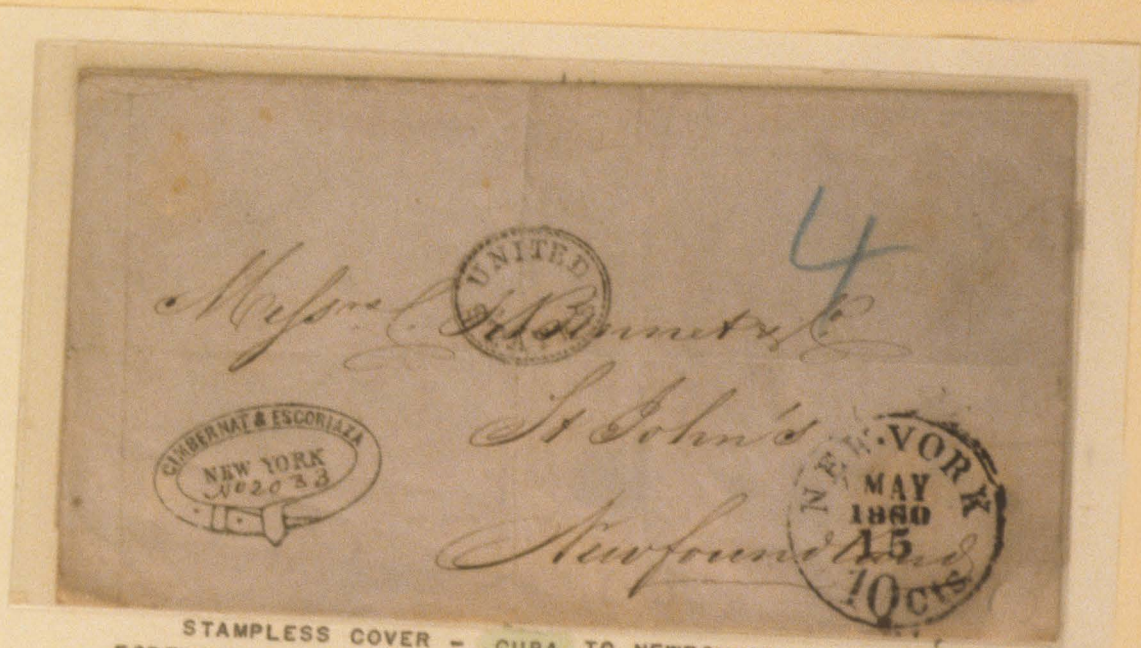 4
UNITED
STATES
Messrs. C. F. Bennet & Co
St John's
Newfoundland
GIMBERNAT & ESCORIAZA
NEW YORK
No 2033
NEW-YORK
MAY
1860
15
10 cts
STAMPLESS COVER - CUBA TO